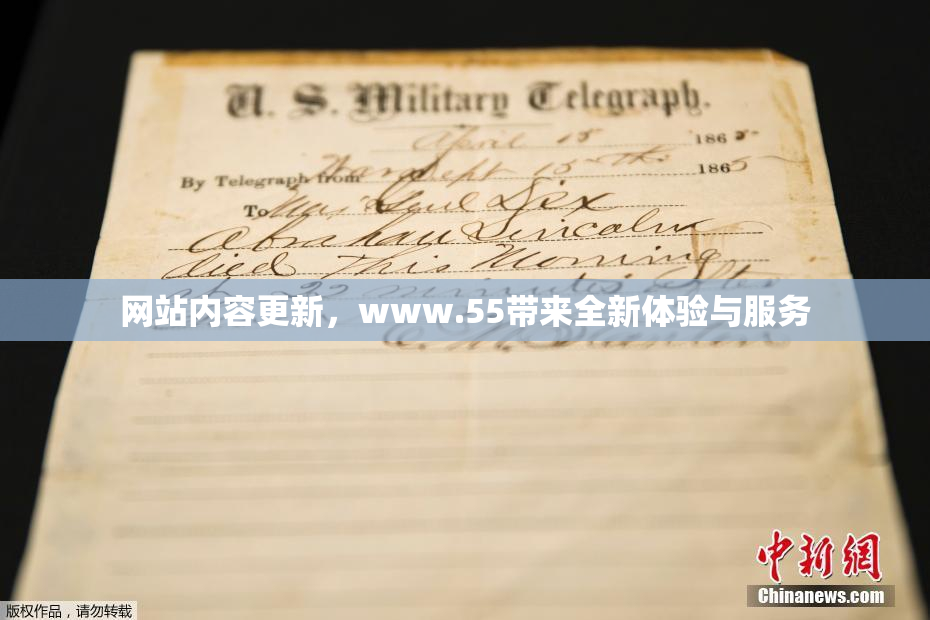 U. S. Military Telegraph.
April 15 1865
By Telegraph from War Dept 15th 1865
To Maj Genl Dix
Abraham Lincoln
died This Morning
at 22 minutes after
网站内容更新，www.55带来全新体验与服务
E. M. Stanton
中新网
Chinanews.com
版权作品，请勿转载